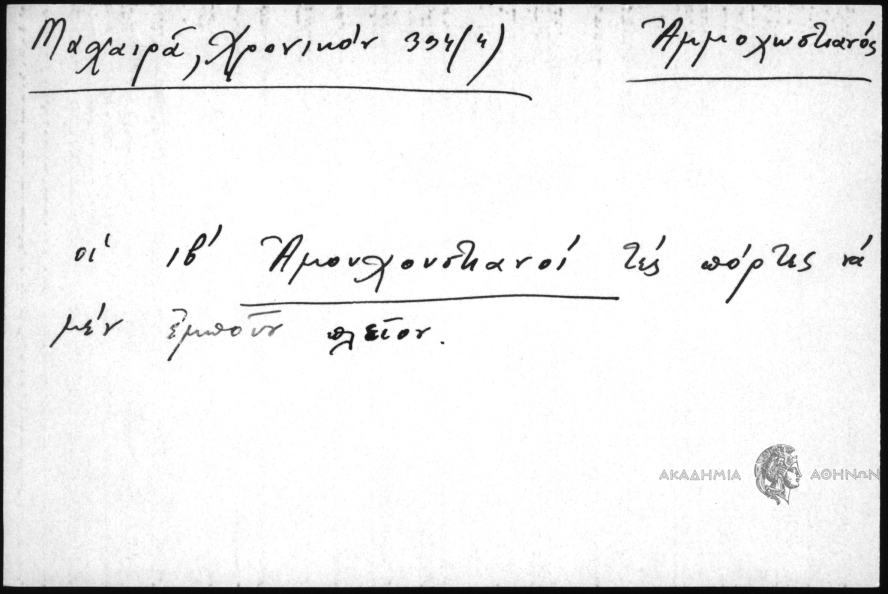 Μαχαιρᾶ, Χρονικόν 394(4)
Ἀμμοχωστιανός
οἱ ιβ' Ἀμουχουστιανοί τές πόρτες νά
μέν ἐμποῦν πλεῖον.
ΑΚΑΔΗΜΙΑ ΑΘΗΝΩΝ